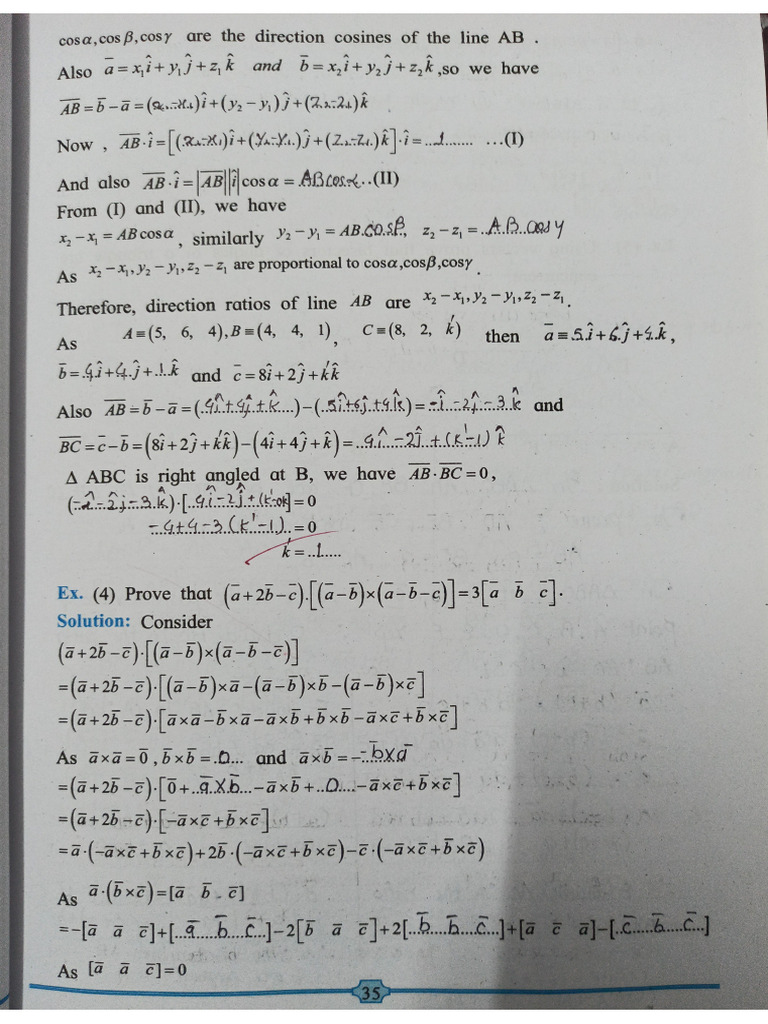 cosα,cosβ,cosγ are the direction cosines of the line AB .
Also a̅ = x₁î + y₁ĵ + z₁k̂ and b̅ = x₂î + y₂ĵ + z₂k̂ ,so we have
A̅B̅ = b̅ − a̅ = (x₂−x₁)î + (y₂ − y₁)ĵ + (z₂−z₁)k̂
Now , A̅B̅·î = [(x₂−x₁)î + (y₂−y₁)ĵ + (z₂−z₁)k̂]·î = ...1....... ...(I)
And also A̅B̅·î = |A̅B̅||î|cosα = ABcosα..(II)
From (I) and (II), we have
x₂ − x₁ = AB cosα , similarly y₂ − y₁ = AB.cosβ., z₂ − z₁ = ..A.B..cosγ
As x₂ − x₁, y₂ − y₁, z₂ − z₁ are proportional to cosα,cosβ,cosγ .
Therefore, direction ratios of line AB are x₂ − x₁, y₂ − y₁, z₂ − z₁ .
As A ≡ (5, 6, 4), B ≡ (4, 4, 1) , C ≡ (8, 2, k') then a̅ ≡ .5.î+6.ĵ+4.k̂ ,
b̅ = .4î+4.ĵ+.1.k̂ and c̅ = 8î + 2ĵ + k'k̂
Also A̅B̅ = b̅ − a̅ = (.4î+4ĵ+k̂....) − (.5î+6ĵ+4k̂) = −î...−2ĵ..−3.k̂ and
B̅C̅ = c̅ − b̅ = (8î + 2ĵ + k'k̂) − (4î + 4ĵ + k̂) = ..4î..−2ĵ..+(k'−1) k̂
Δ ABC is right angled at B, we have A̅B̅·B̅C̅ = 0 ,
(−î−2ĵ−3.k̂)·[..4î−2ĵ+(k'−1)k̂] = 0
−4+4−3(k'−1).. = 0
k' = ..1.....
Ex. (4) Prove that (a̅ + 2b̅ − c̅).[(a̅ − b̅)×(a̅ − b̅ − c̅)] = 3[a̅ b̅ c̅].
Solution: Consider
(a̅ + 2b̅ − c̅)·[(a̅ − b̅)×(a̅ − b̅ − c̅)]
= (a̅ + 2b̅ − c̅)·[(a̅ − b̅)×a̅ − (a̅ − b̅)×b̅ − (a̅ − b̅)×c̅]
= (a̅ + 2b̅ − c̅)·[a̅×a̅ − b̅×a̅ − a̅×b̅ + b̅×b̅ − a̅×c̅ + b̅×c̅]
As a̅×a̅ = 0̅ , b̅×b̅ = .0... and a̅×b̅ = −−b̅×a̅
= (a̅ + 2b̅ − c̅)·[0̅ + ..a̅×b̅... − a̅×b̅ + ..0.... − a̅×c̅ + b̅×c̅]
= (a̅ + 2b̅ − c̅)·[−a̅×c̅ + b̅×c̅]
= a̅·(−a̅×c̅ + b̅×c̅) + 2b̅·(−a̅×c̅ + b̅×c̅) − c̅·(−a̅×c̅ + b̅×c̅)
As a̅·(b̅×c̅) = [a̅ b̅ c̅]
= −[a̅ a̅ c̅] + [..a̅.....b̅....c̅..] − 2[b̅ a̅ c̅] + 2[..b̅....b̅...c̅...] + [a̅ c̅ a̅] − [..c̅.....b̅....c̅..]
As [a̅ a̅ c̅] = 0
35